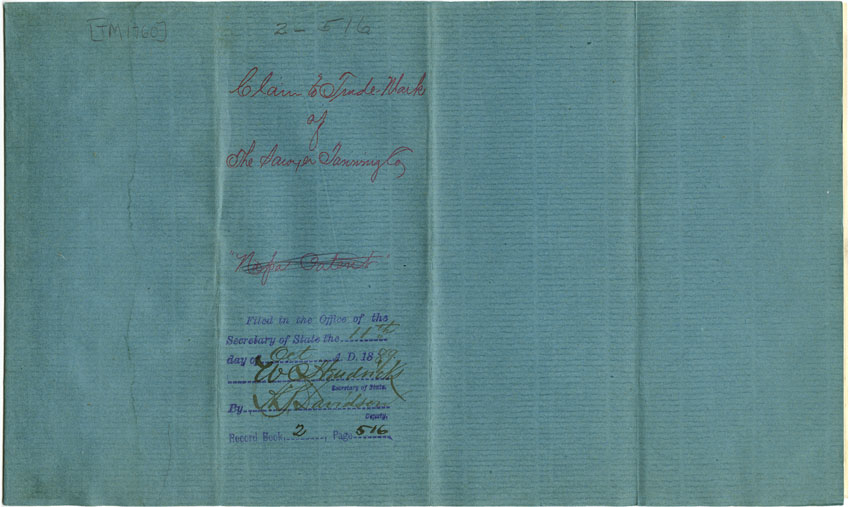 [TM1760]
2 - 516
Claim to Trade Mark
of
The Sawyer Tanning Co,
Napa Patent
Filed in the Office of the
Secretary of State the 11th
day of Oct A. D. 1889
W C Hendricks
Secretary of State.
By Davidson
Deputy.
Record Book 2, Page 516